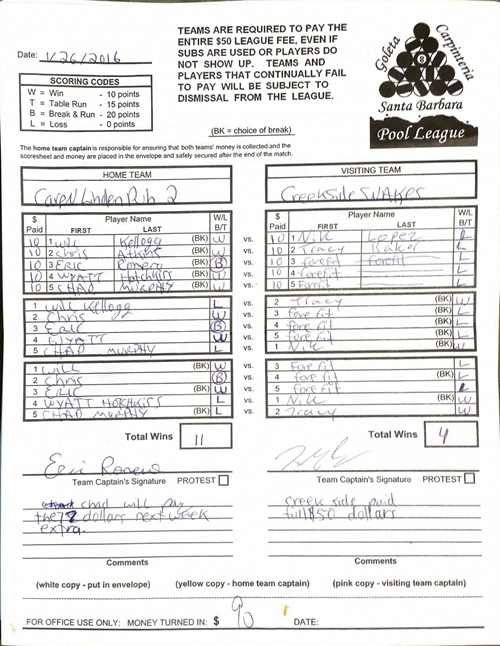 Date: 1/26/2016
TEAMS ARE REQUIRED TO PAY THE
ENTIRE $50 LEAGUE FEE, EVEN IF
SUBS ARE USED OR PLAYERS DO
NOT SHOW UP. TEAMS AND
PLAYERS THAT CONTINUALLY FAIL
TO PAY WILL BE SUBJECT TO
DISMISSAL FROM THE LEAGUE.
SCORING CODES
W = Win - 10 points
T = Table Run - 15 points
B = Break & Run - 20 points
L = Loss - 0 points
Goleta
Carpinteria
8
Santa Barbara
Pool League
(BK = choice of break)
The home team captain is responsible for ensuring that both teams' money is collected and the
scoresheet and money are placed in the envelope and safely secured after the end of the match.
HOME TEAM
VISITING TEAM
2
Creekside SNAKES
$ Paid Player Name FIRST LAST W/L B/T
$ Paid Player Name FIRST LAST W/L B/T
10 1 Will Kellogg (BK) W vs. 10 1 Nik Lopez L
10 2 Chris Atkins (BK) W vs. 10 2 Tracy L
10 3 ERIC (BK) B vs. 10 3 forefit forefit L
10 4 WYATT HOTCHKISS (BK) W vs. 10 4 forefit L
10 5 CHAD MURPHY (BK) W vs. 10 5 L
1 Will Kellogg L vs. 2 Tracy (BK) W
2 Chris W vs. 3 fore fit (BK) L
3 Eric B vs. 4 fore fit (BK) L
4 WYATT W vs. 5 fore fit (BK) L
5 CHAD MURPHY L vs. 1 Nik (BK) W
1 Will (BK) W vs. 3 Fore fit L
2 Chris B vs. 4 fore fit (BK) L
3 ERIC (BK) W vs. 5 fore fit L
4 WYATT HOTCHKISS L vs. 1 Nik (BK) W
5 CHAD MURPHY (BK) L vs. 2 Tracy W
Total Wins 11
Total Wins 4
Team Captain's Signature PROTEST
Team Captain's Signature PROTEST
chad will pay
dollars next week
extra.
Creek side paid
full $50 dollars
Comments
Comments
(white copy - put in envelope) (yellow copy - home team captain) (pink copy - visiting team captain)
FOR OFFICE USE ONLY: MONEY TURNED IN: $ 90 DATE: